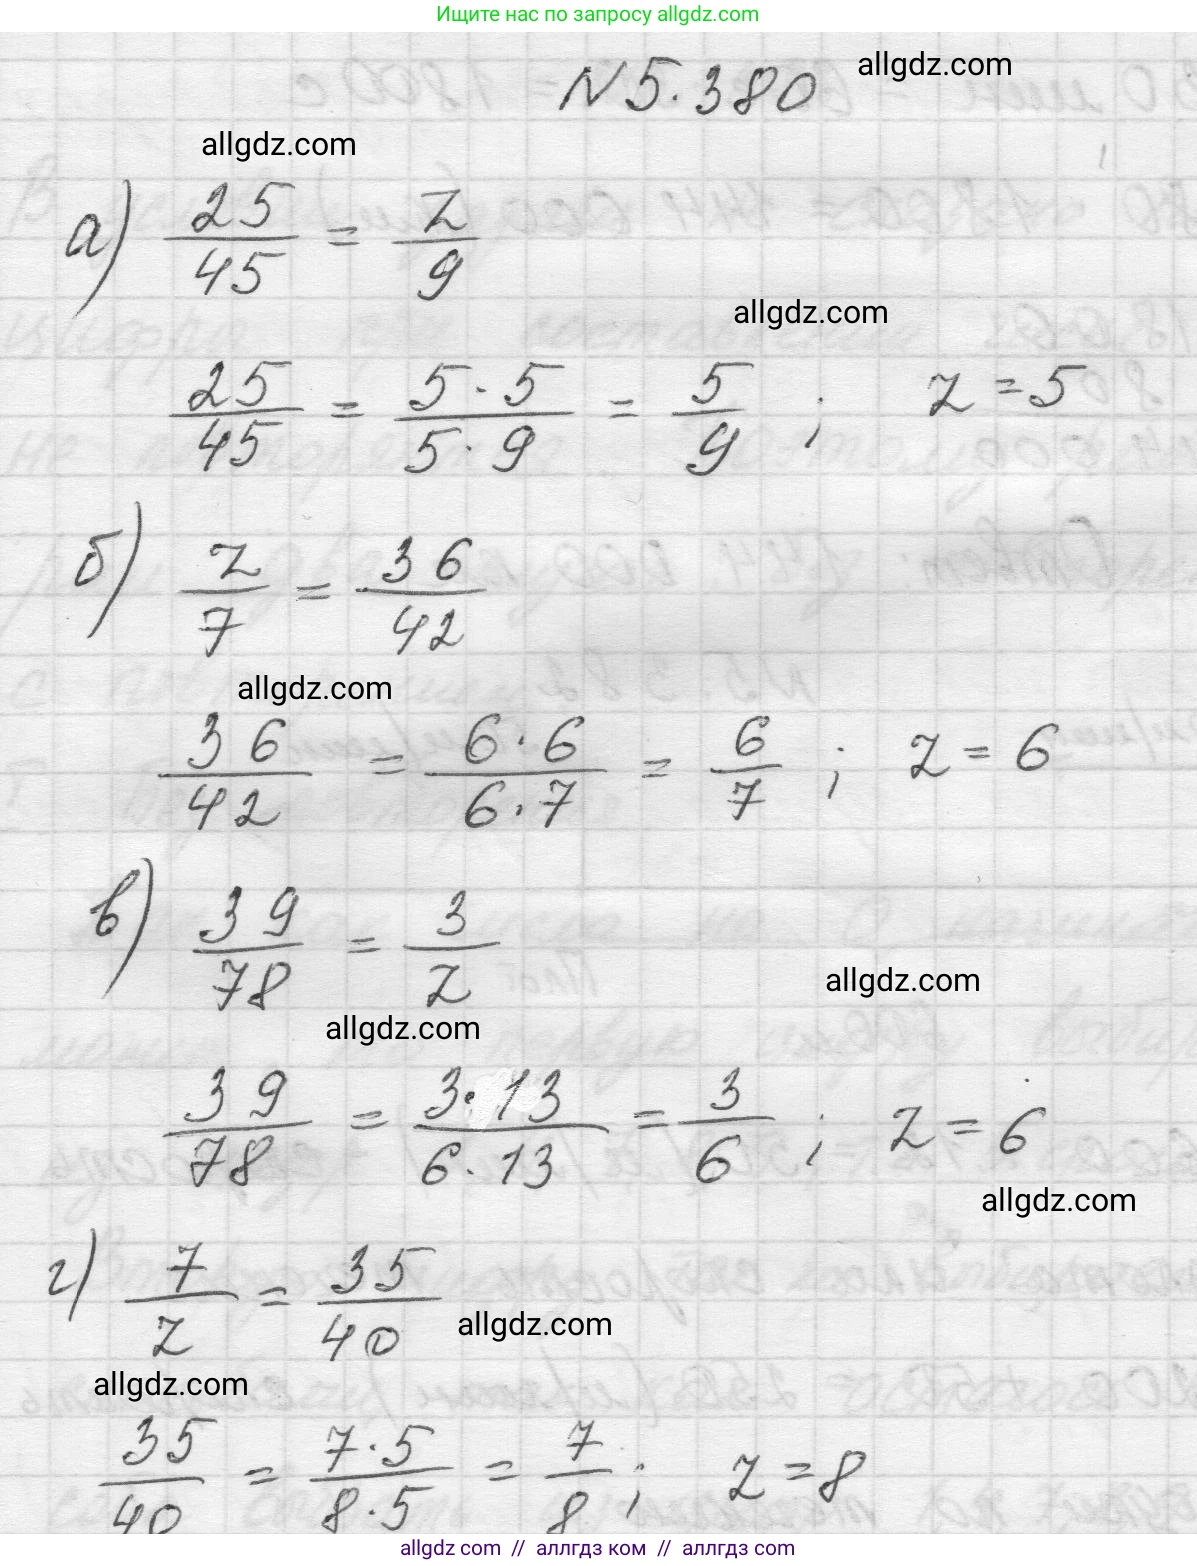 Ищите нас по запросу allgdz.com
N 5.380
allgdz.com
allgdz.com
а) 25/45 = z/9
allgdz.com
25/45 = 5·5/5·9 = 5/9 ; z = 5
б) z/7 = 36/42
allgdz.com
36/42 = 6·6/6·7 = 6/7 ; z = 6
в) 39/78 = 3/z
allgdz.com
allgdz.com
39/78 = 3·13/6·13 = 3/6 ; z = 6
allgdz.com
г) 7/z = 35/40
allgdz.com
allgdz.com
35/40 = 7·5/8·5 = 7/8 ; z = 8
allgdz.com // аллгдз ком // аллгдз.com